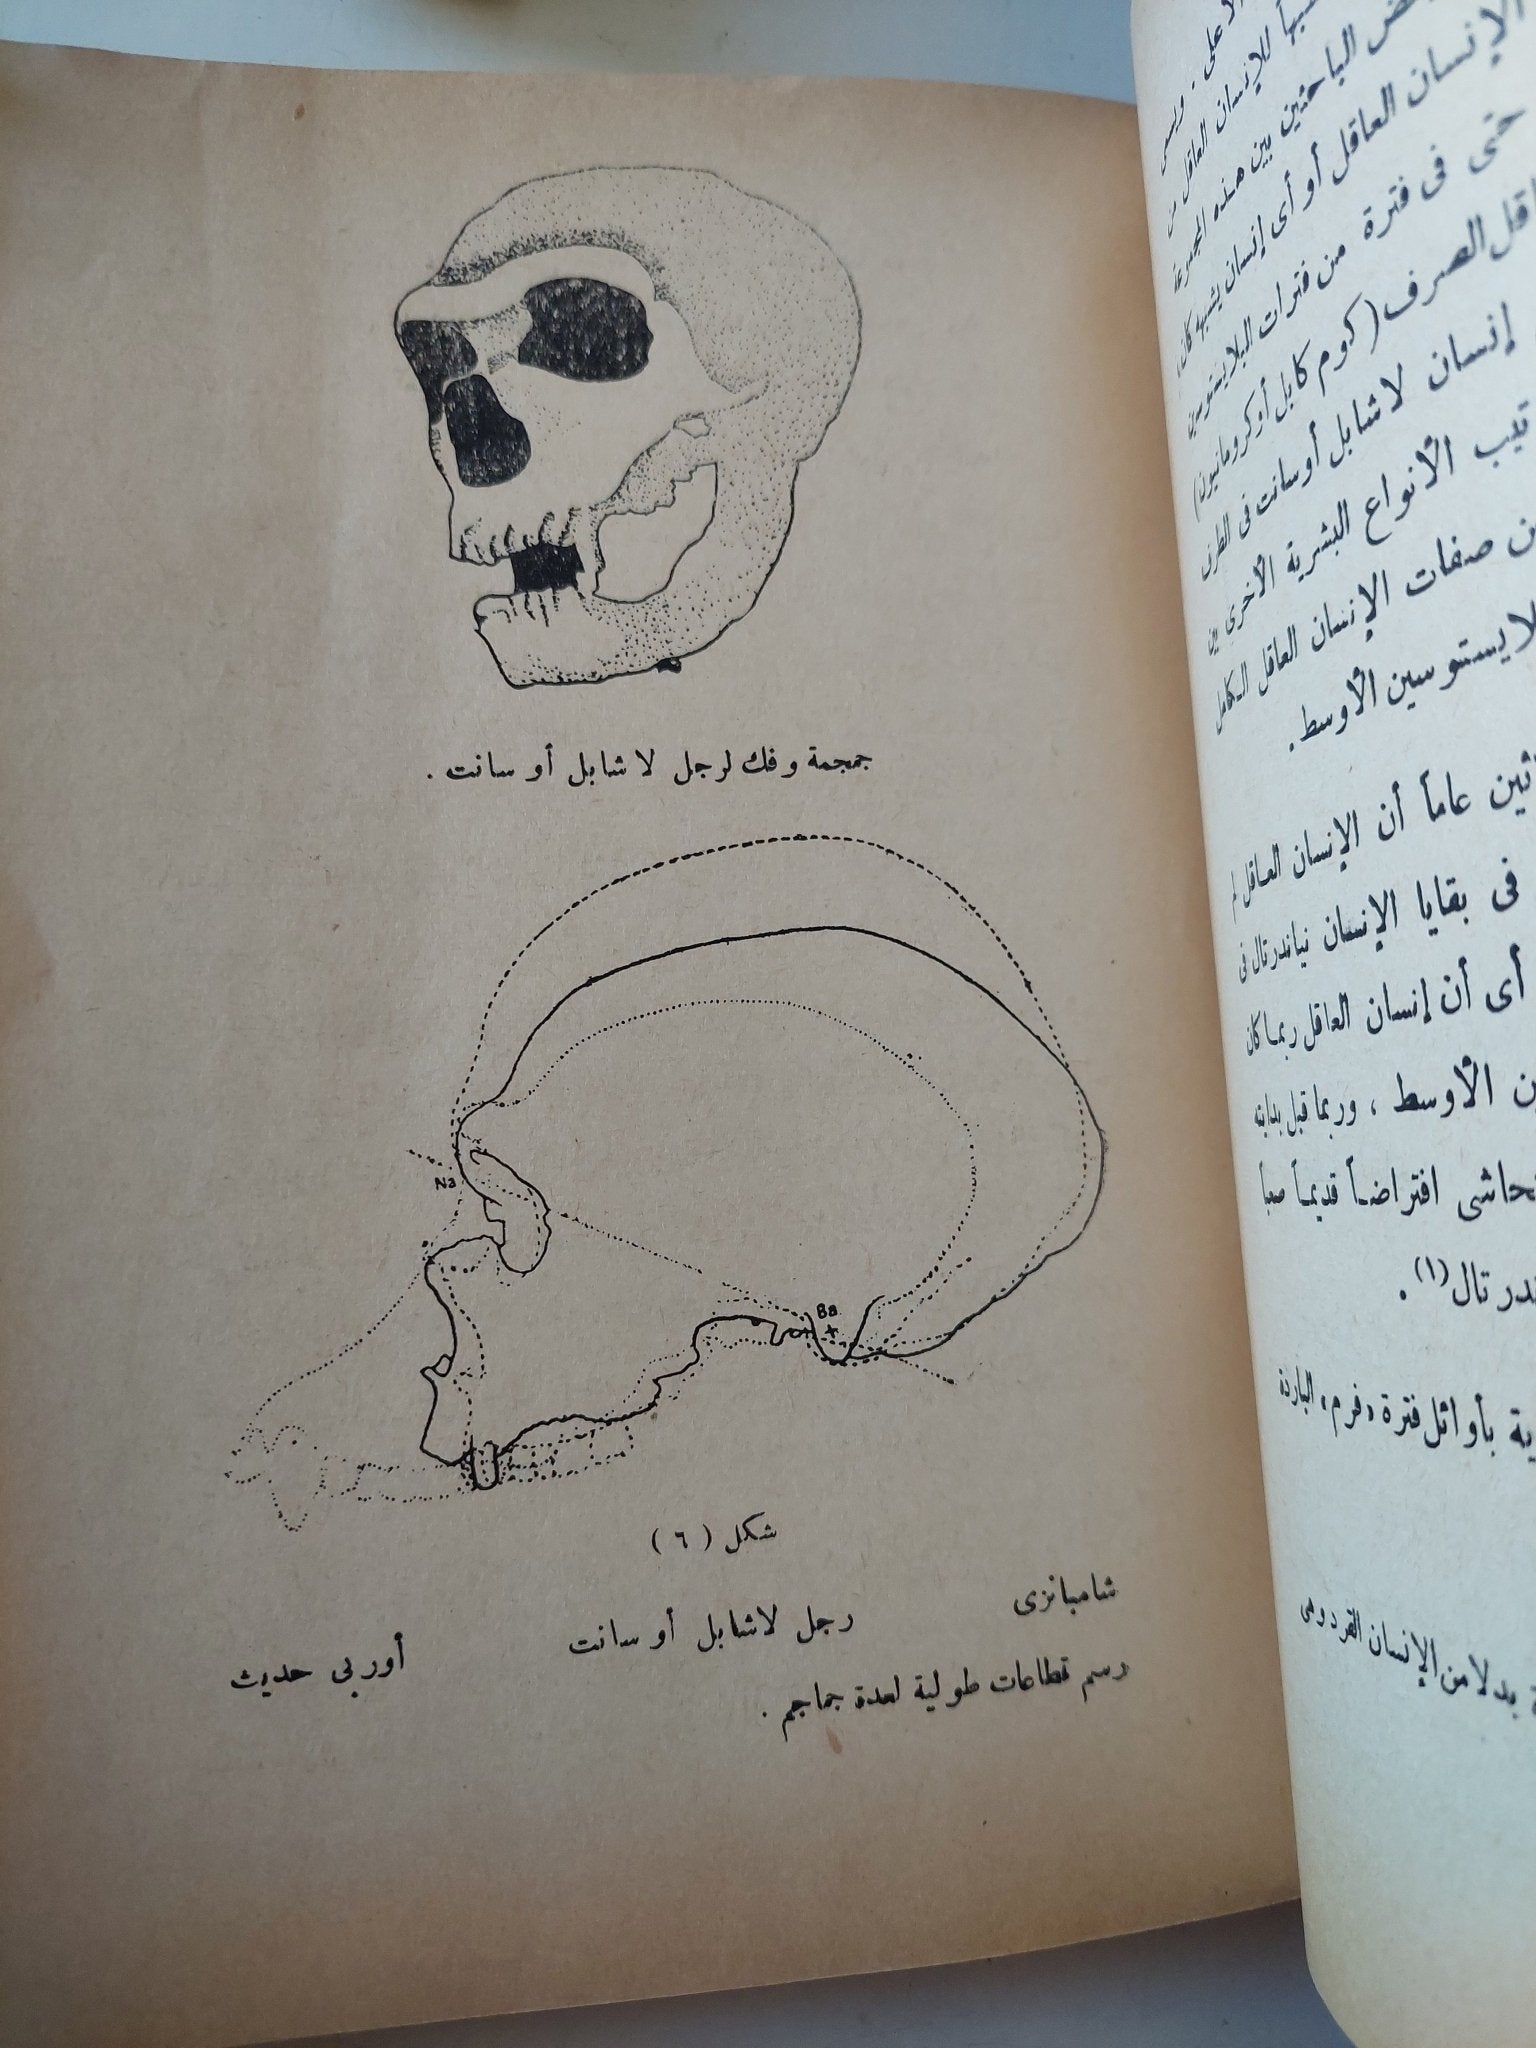 جمجمة وفك لرجل لا شابل أو سانت .
Na
Ba
شكل ( ٦ )
شامبانزى
رجل لاشابل أو سانت
أوربى حديث
رسم قطاعات طولية لعدة جماجم .
الأعلى . ويسمى
للإنسان العاقل من
الباحثين بين هذه المجموعة
الإنسان العاقل أو أى إنسان يشبهه كان
حتى فى فترة من فترات البلايستوسين
الصرف ( كوم كابل أو كرومانيون )
إنسان لاشابل أوسانت فى الطرف
الأنواع البشرية الأخرى بين
صفات الإنسان العاقل الكامل
الأوسط .
عاماً أن الإنسان العاقل لم
فى بقايا الإنسان نياندرتال فى
أى أن إنسان العاقل ربما كان
الأوسط ، وربما قبل بدايته
افتراضاً قديماً صعباً
(١) .
بأوائل فترة « فرم » الباردة
بدلا من الإنسان القرد وهى